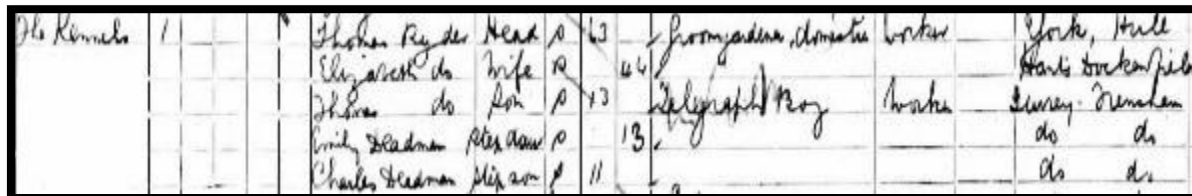 The Kennels 1 Thomas Ryder Head 63 Groom gardener, domestic worker York, Hull
Elizabeth do Wife 44 Hants Dockenfield
Thomas do Son 13 Telegraph Boy Worker Surrey. Frensham
Emily Deadman Stepdaur 13 do do
Charles Deadman Stepson 11 do do